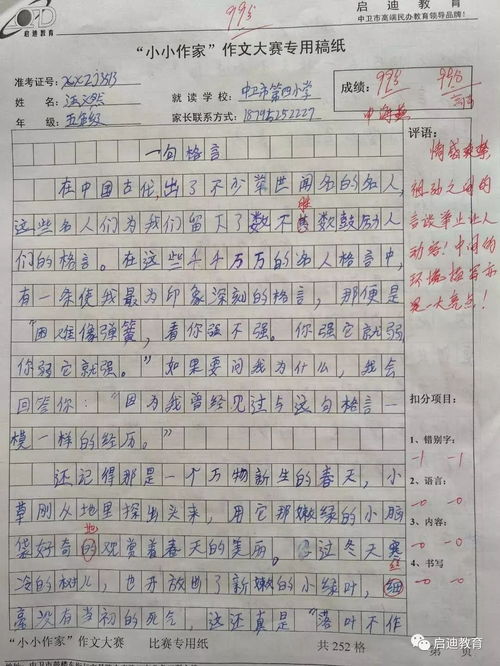 启迪教育
99分
启迪教育
中卫市高端民办教育领导品牌!
“小小作家”作文大赛专用稿纸
准考证号:
姓 名
年 级: 五年级
就读学校: 中卫市第四小学
家长联系方式: 18795252227
成绩: 99分 99分
评语:
一句格言
在中国古代,出了不少举世闻名的名人,
这些名人们为我们留下了数不胜数鼓励人
们的格言。在这些千千万万的名人格言中,
有一条使我最为印象深刻的格言,那便是
“困难像弹簧,看你强不强。你强它就弱,
你弱它就强。”如果要问我为什么,我会
回答你:“因为我曾经见过与这句格言一
模一样的经历。”
还记得那是一个万物新生的春天,小
草刚从地里探出头来,用它那嫩绿的小脑
袋好奇的地观赏着春天的美丽。过冬天寒
冷的树儿,也开放出了新嫩的小绿叶,细
毫没有当初的死气,这还真是“落叶不作
言谈举止让人
动容!中间的
环境描写亦
是一大亮点!
扣分项目:
1、错别字:
-1 -1
2、语言:
-0 -0
3、内容:
-0 -0
4、书写
-0 -0
“小小作家”作文大赛 比赛专用纸 共252格 第 页
启迪教育